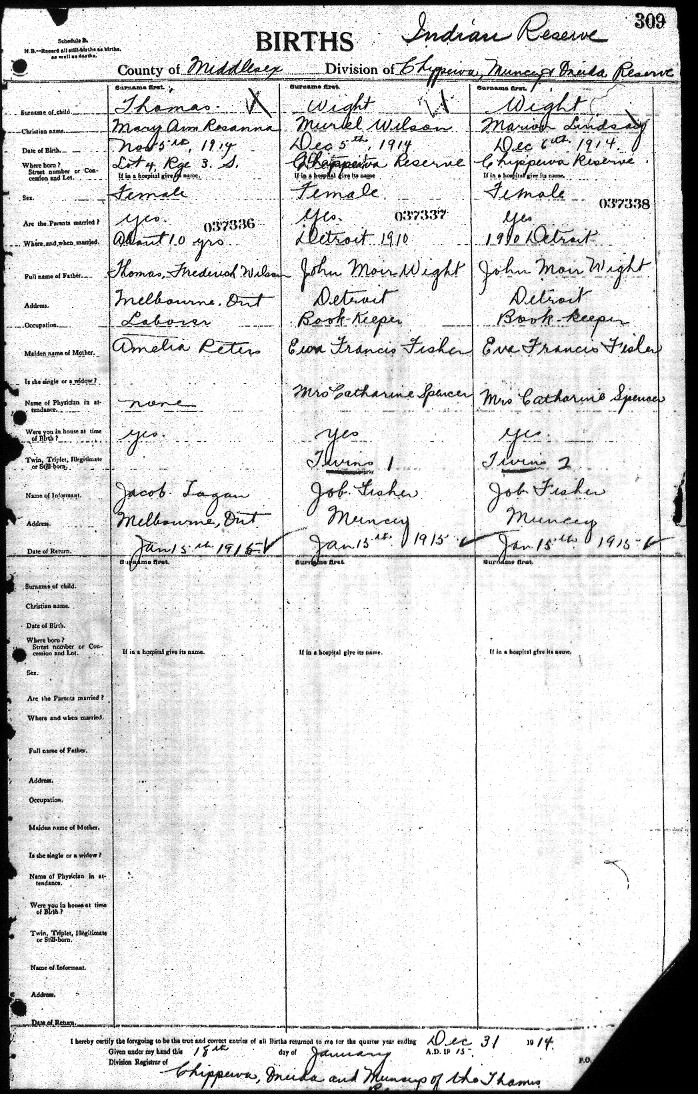 309
Schedule B.
N.B.—Record all still-births as births, as well as deaths.
BIRTHS
Indian Reserve
County of Middlesex Division of Chippewa, Muncey & Oneida Reserve
Surname first. Surname first. Surname first.
Surname of child. Thomas. Wight Wight
Christian name. Mary Ann Rosanna Muriel Wilson Marion Lindsay
Date of Birth. Nov 5th, 1914 Dec 5th, 1914 Dec 6th 1914.
Where born? Street number or Concession and Lot. Lot 4, Rge 3. S. Chippewa Reserve Chippewa Reserve.
If in a hospital give its name If in a hospital give its name If in a hospital give its name
Sex. Female Female Female
Are the Parents married? yes. 037336 Yes. 037337 yes 037338
Where and when married. About 10 yrs Detroit 1910 1910 Detroit
Full name of Father. Thomas, Frederick Wilson John Moir Wight John Moir Wight
Address. Melbourne, Ont Detroit Detroit
Occupation. Laborer Book Keeper Book-keeper
Maiden name of Mother. Amelia Peters Ewa Francis Fisher Eva Francis Fisler
Is she single or a widow?
Name of Physician in attendance. none Mrs Catharine Spencer Mrs Catharine Spencer
Were you in house at time of Birth? yes. yes yes.
Twin, Triplet, Illegitimate or Still-born. Twins 1 Twins 2
Name of Informant. Jacob Job Fisher Job Fisher
Address. Melbourne, Ont Muncey Muncey
Date of Return. Jan 15th 1915 Jan 15th 1915 Jan 15th 1915
Surname first. Surname first. Surname first.
Surname of child.
Christian name.
Date of Birth.
Where born? Street number or Concession and Lot.
If in a hospital give its name. If in a hospital give its name. If in a hospital give its name.
Sex.
Are the Parents married?
Where and when married.
Full name of Father.
Address.
Occupation.
Maiden name of Mother.
Is she single or a widow?
Name of Physician in attendance.
Were you in house at time of Birth?
Twin, Triplet, Illegitimate or Still-born.
Name of Informant.
Address.
Date of Return.
I hereby certify the foregoing to be the true and correct entries of all Births returned to me for the quarter year ending Dec 31 1914.
Given under my hand this 18th day of January A.D. 1915.
Division Registrar of Chippewa, Oneida and Munceys of the Thames
P.O.